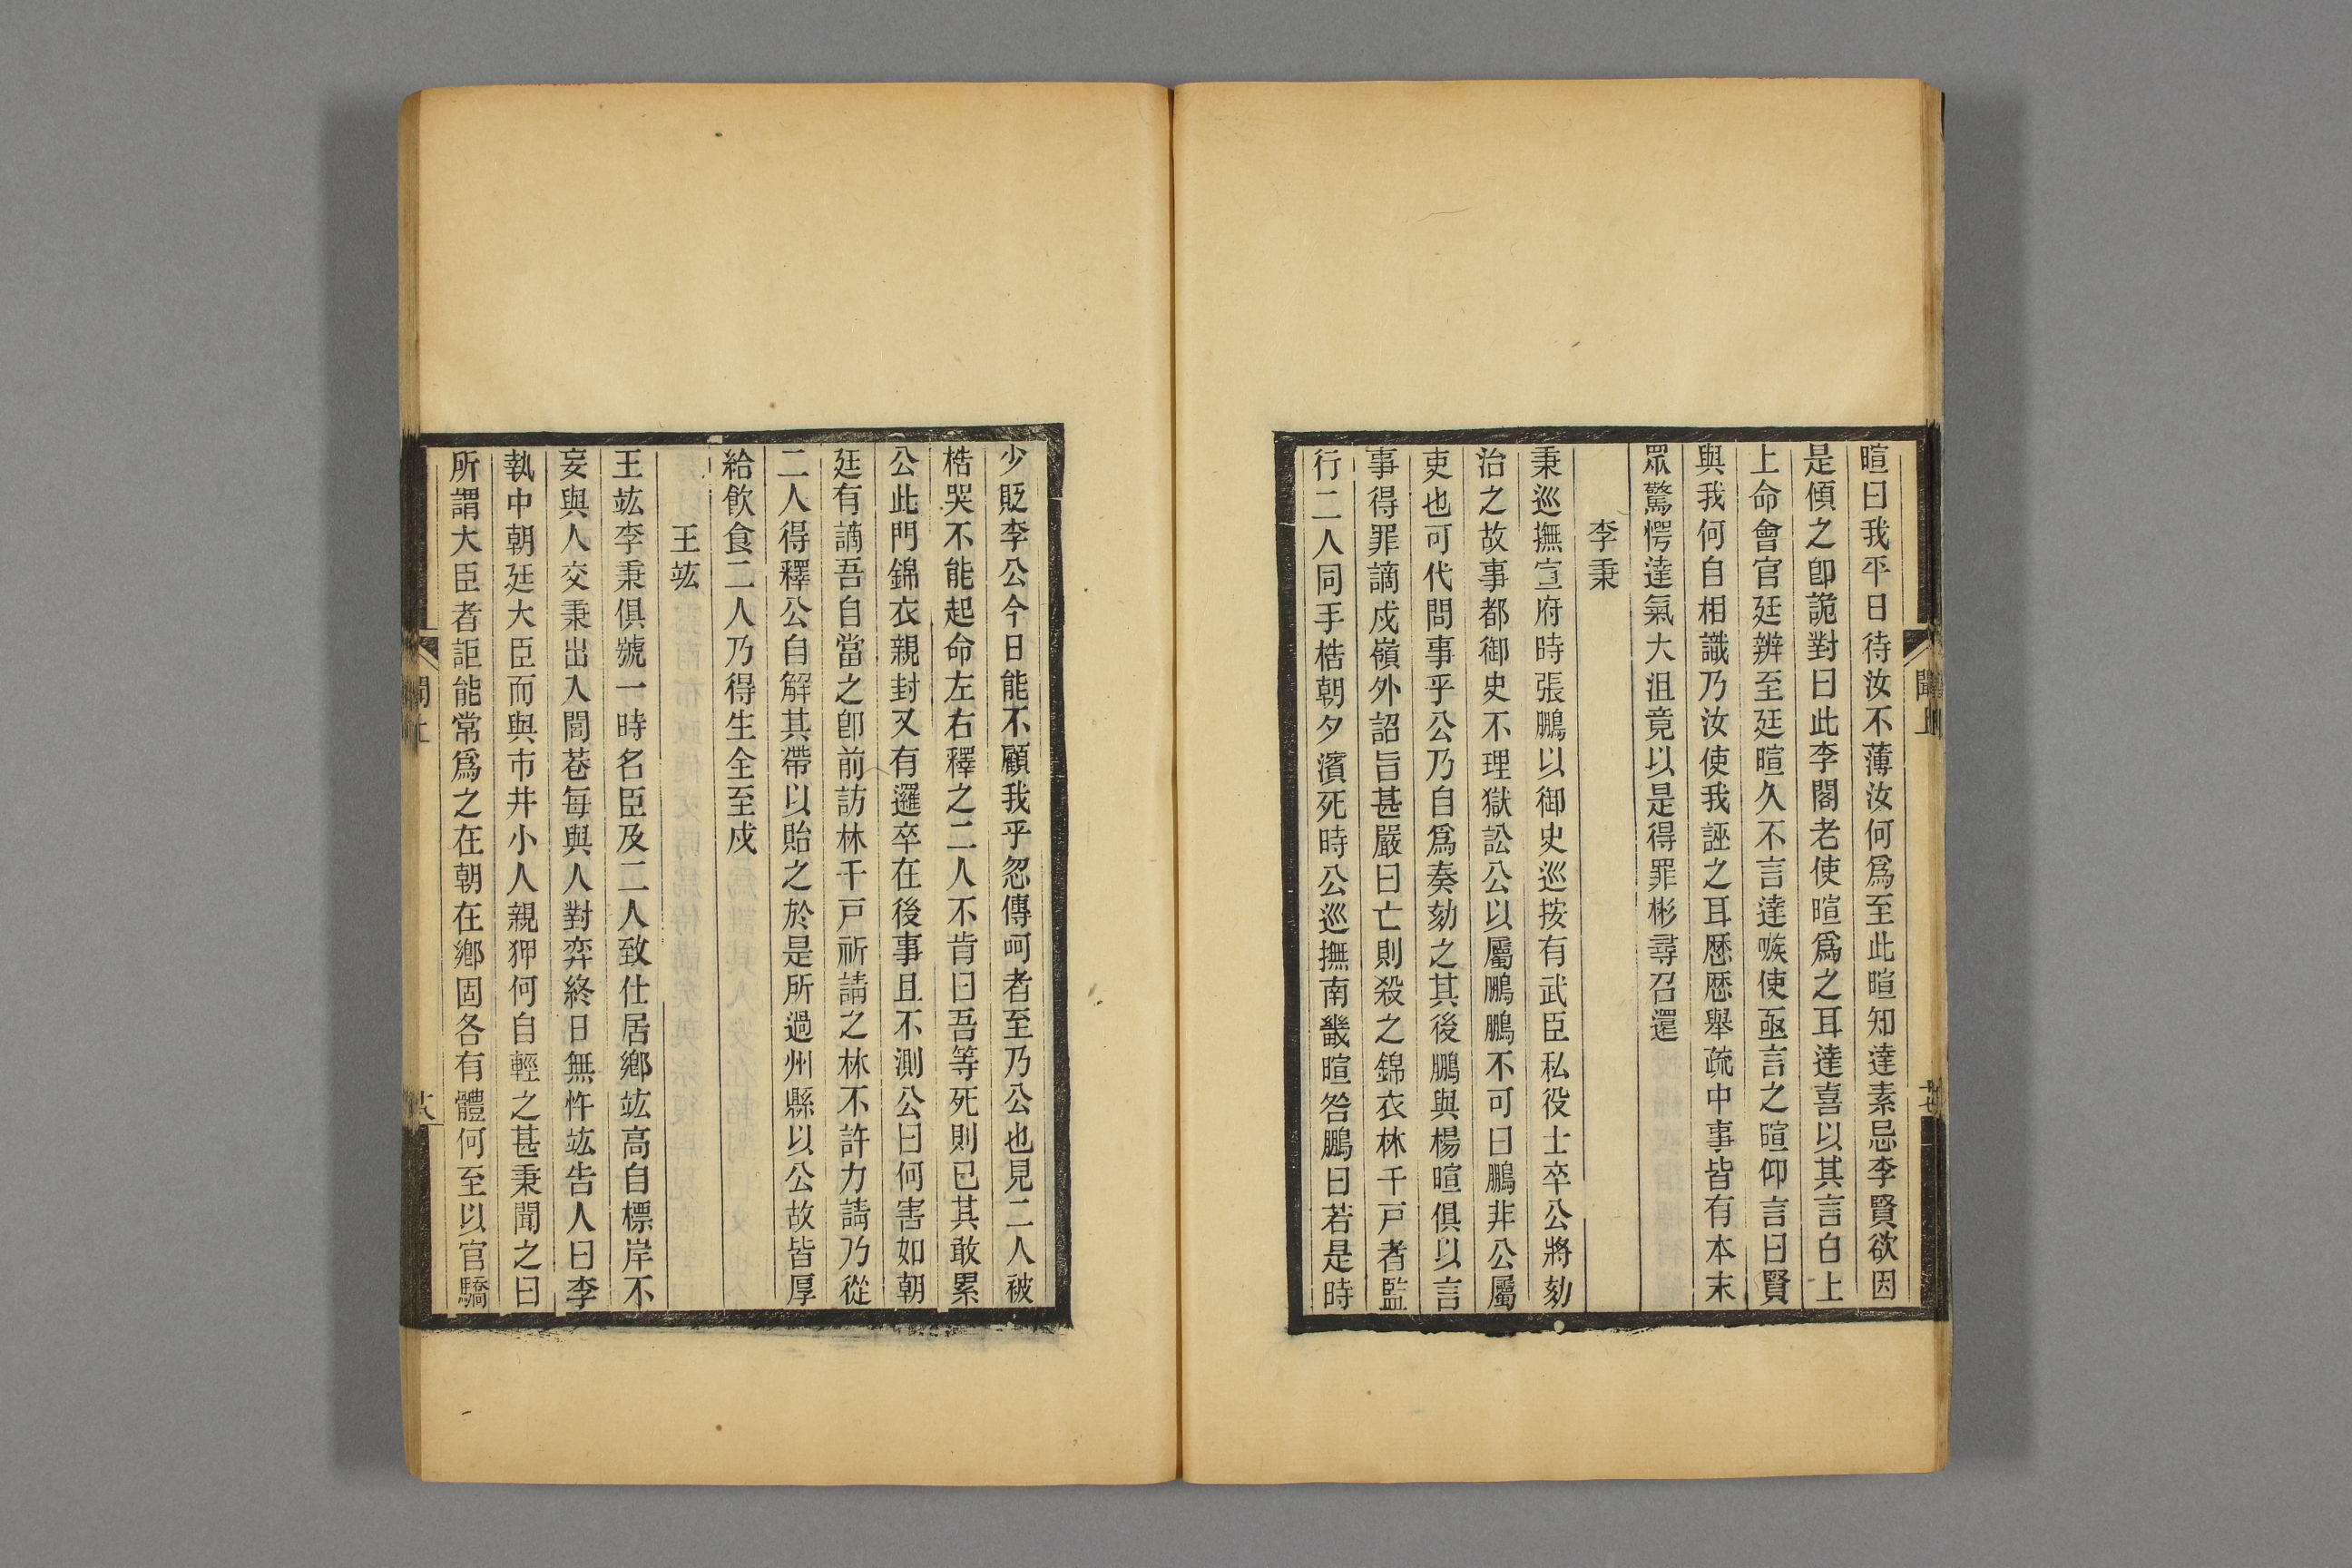 暄曰我平日待汝不薄汝何爲至此暄知達素忌李賢欲因
是傾之卽詭對曰此李閣老使暄爲之耳達喜以其言白上
上命會官廷辨至廷暄久不言達嗾使亟言之暄仰言曰賢
與我何自相識乃汝使我誣之耳歷歷舉疏中事皆有本末
眾驚愕達氣大沮竟以是得罪彬尋召還
李秉
秉巡撫宣府時張鵬以御史巡按有武臣私役士卒公將劾
治之故事都御史不理獄訟公以屬鵬鵬不可曰鵬非公屬
吏也可代問事乎公乃自爲奏劾之其後鵬與楊暄俱以言
事得罪謫戍嶺外詔旨甚嚴曰亡則殺之錦衣林千戸者監
行二人同手梏朝夕濱死時公巡撫南畿暄咎鵬曰若是時
少貶李公今日能不顧我乎忽傳呵者至乃公也見二人被
梏哭不能起命左右釋之二人不肯曰吾等死則已其敢累
公此門錦衣親封又有邏卒在後事且不測公曰何害如朝
廷有謫吾自當之卽前訪林千戸祈請之林不許力請乃從
二人得釋公自解其帶以貽之於是所過州縣以公故皆厚
給飲食二人乃得生全至戍
王竑
王竑李秉俱號一時名臣及二人致仕居鄉竑高自標岸不
妄與人交秉出入閭巷每與人對弈終日無忤竑告人曰李
執中朝廷大臣而與市井小人親狎何自輕之甚秉聞之曰
所謂大臣者詎能常爲之在朝在鄉固各有體何至以官驕